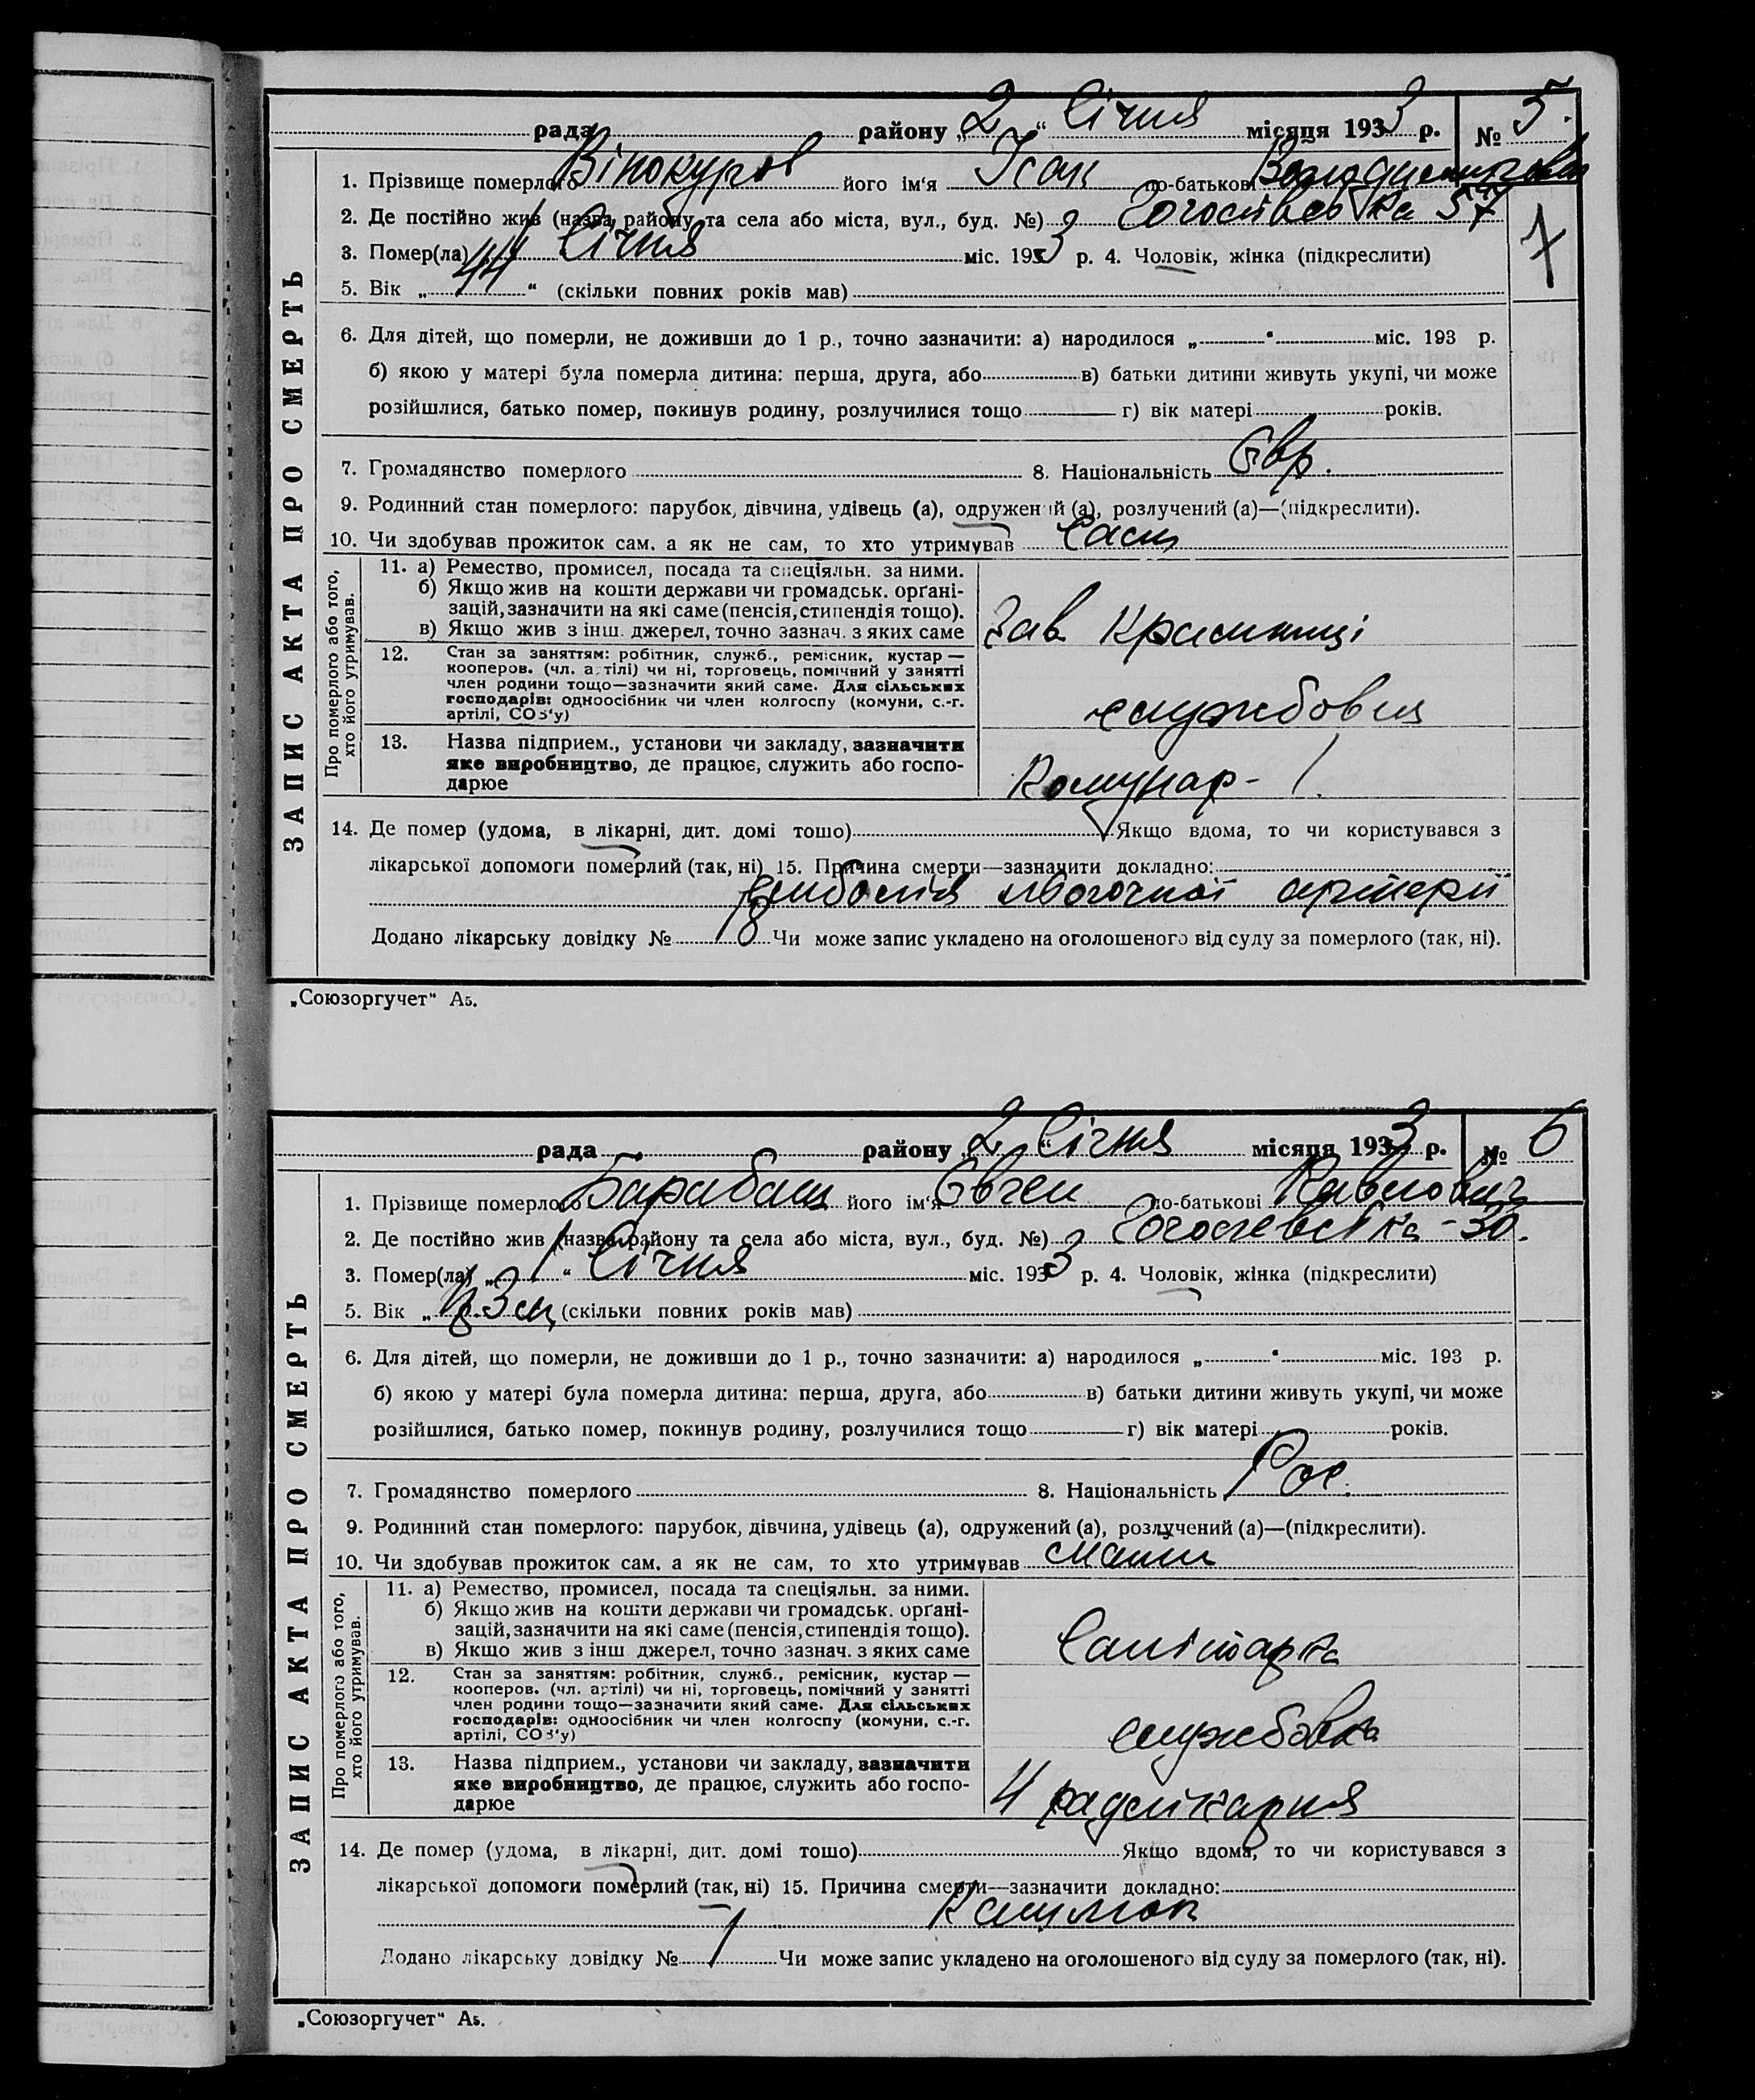 рада району „2“ Січня місяця 1933 р. № 5.
1. Прізвище померлого Вінокуров його ім‘я Ісак по-батькові
2. Де постійно жив (назва району та села або міста, вул., буд. №) 57
3. Помер(ла) „1“ Січня міс. 1933 р. 4. Чоловік, жінка (підкреслити)
7
5. Вік „44“ (скільки повних років мав)
6. Для дітей, що померли, не доживши до 1 р., точно зазначити: а) народилося „ “ міс. 193 р.
б) якою у матері була померла дитина: перша, друга, або в) батьки дитини живуть укупі, чи може
розійшлися, батько помер, покинув родину, розлучилися тощо г) вік матері років.
7. Громадянство померлого 8. Національність Євр.
9. Родинний стан померлого: парубок, дівчина, удівець (а), одружений (а), розлучений (а)—(підкреслити).
10. Чи здобував прожиток сам, а як не сам, то хто утримував Сам
ЗАПИС АКТА ПРО СМЕРТЬ
Про померлого або того, хто його утримував.
11. а) Ремество, промисел, посада та спеціяльн. за ними.
б) Якщо жив на кошти держави чи громадськ. орґані-
зацій, зазначити на які саме (пенсія, стипендія тощо).
в) Якщо жив з інш. джерел, точно зазнач. з яких саме
Зав Крамниці
12. Стан за заняттям: робітник, служб., ремісник, кустар —
кооперов. (чл. артілі) чи ні, торговець, помічний у занятті
член родини тощо—зазначити який саме. Для сільських
господарів: одноосібник чи член колгоспу (комуни, с.-г.
артілі, СОЗ‘у)
службовец
13. Назва підприєм., установи чи закладу, зазначити
яке виробництво, де працює, служить або госпо-
дарює
Комунар - 1.
14. Де помер (удома, в лікарні, дит. домі тошо) Якщо вдома, то чи користувався з
лікарської допомоги померлий (так, ні) 15. Причина смерти—зазначити докладно:
емболія артерії
Додано лікарську довідку № 18 Чи може запис укладено на оголошеного від суду за померлого (так, ні).
„Союзоргучет“ А5.
рада району „2“ Січня місяця 1933 р. № 6
1. Прізвище померлого Барабаш його ім‘я Євген по-батькові Павлович
2. Де постійно жив (назва району та села або міста, вул., буд. №) - 30.
3. Помер(ла) „1“ Січня міс. 1933 р. 4. Чоловік, жінка (підкреслити)
5. Вік „ 3 м (скільки повних років мав)
6. Для дітей, що померли, не доживши до 1 р., точно зазначити: а) народилося „ “ міс. 193 р.
б) якою у матері була померла дитина: перша, друга, або в) батьки дитини живуть укупі, чи може
розійшлися, батько помер, покинув родину, розлучилися тощо г) вік матері років.
7. Громадянство померлого 8. Національність Рос.
9. Родинний стан померлого: парубок, дівчина, удівець (а), одружений (а), розлучений (а)—(підкреслити).
10. Чи здобував прожиток сам, а як не сам, то хто утримував мати
ЗАПИС АКТА ПРО СМЕРТЬ
Про померлого або того, хто його утримував.
11. а) Ремество, промисел, посада та спеціяльн. за ними.
б) Якщо жив на кошти держави чи громадськ. орґані-
зацій, зазначити на які саме (пенсія, стипендія тощо).
в) Якщо жив з інш джерел, точно зазнач. з яких саме
Санітарка
12. Стан за заняттям: робітник, служб., ремісник, кустар —
кооперов. (чл. артілі) чи ні, торговець, помічний у занятті
член родини тощо—зазначити який саме. Для сільських
господарів: одноосібник чи член колгоспу (комуни, с.-г.
артілі, СОЗ‘у)
службовка
13. Назва підприєм., установи чи закладу, зазначити
яке виробництво, де працює, служить або госпо-
дарює
4 радлікарня
14. Де помер (удома, в лікарні, дит. домі тошо) Якщо вдома, то чи користувався з
лікарської допомоги померлий (так, ні) 15. Причина смерти—зазначити докладно:
Кашлюк
Додано лікарську довідку № 1 Чи може запис укладено на оголошеного від суду за померлого (так, ні).
„Союзоргучет“ А5.